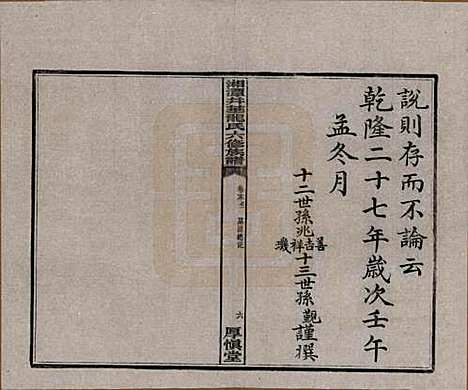 說則存而不論云
乾隆二十七年歲次壬午
孟冬月
十二世孫兆善吉祥璣十三世孫觀謹撰
湘潭井塘龍氏六修族譜
卷末上
六
厚愼堂